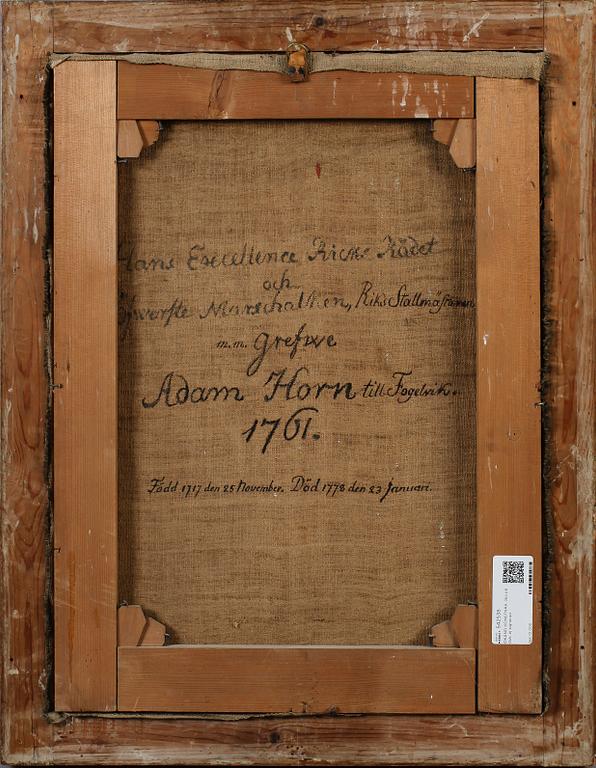 Hans Excellence Ricks Rådet
och
Öfwerste Marschalken, Riks Stallmästaren
m.m. Grefwe
Adam Horn till Fogelvik.
1761.
Född 1717 den 25 November. Död 1778 den 23 Januari.
542538